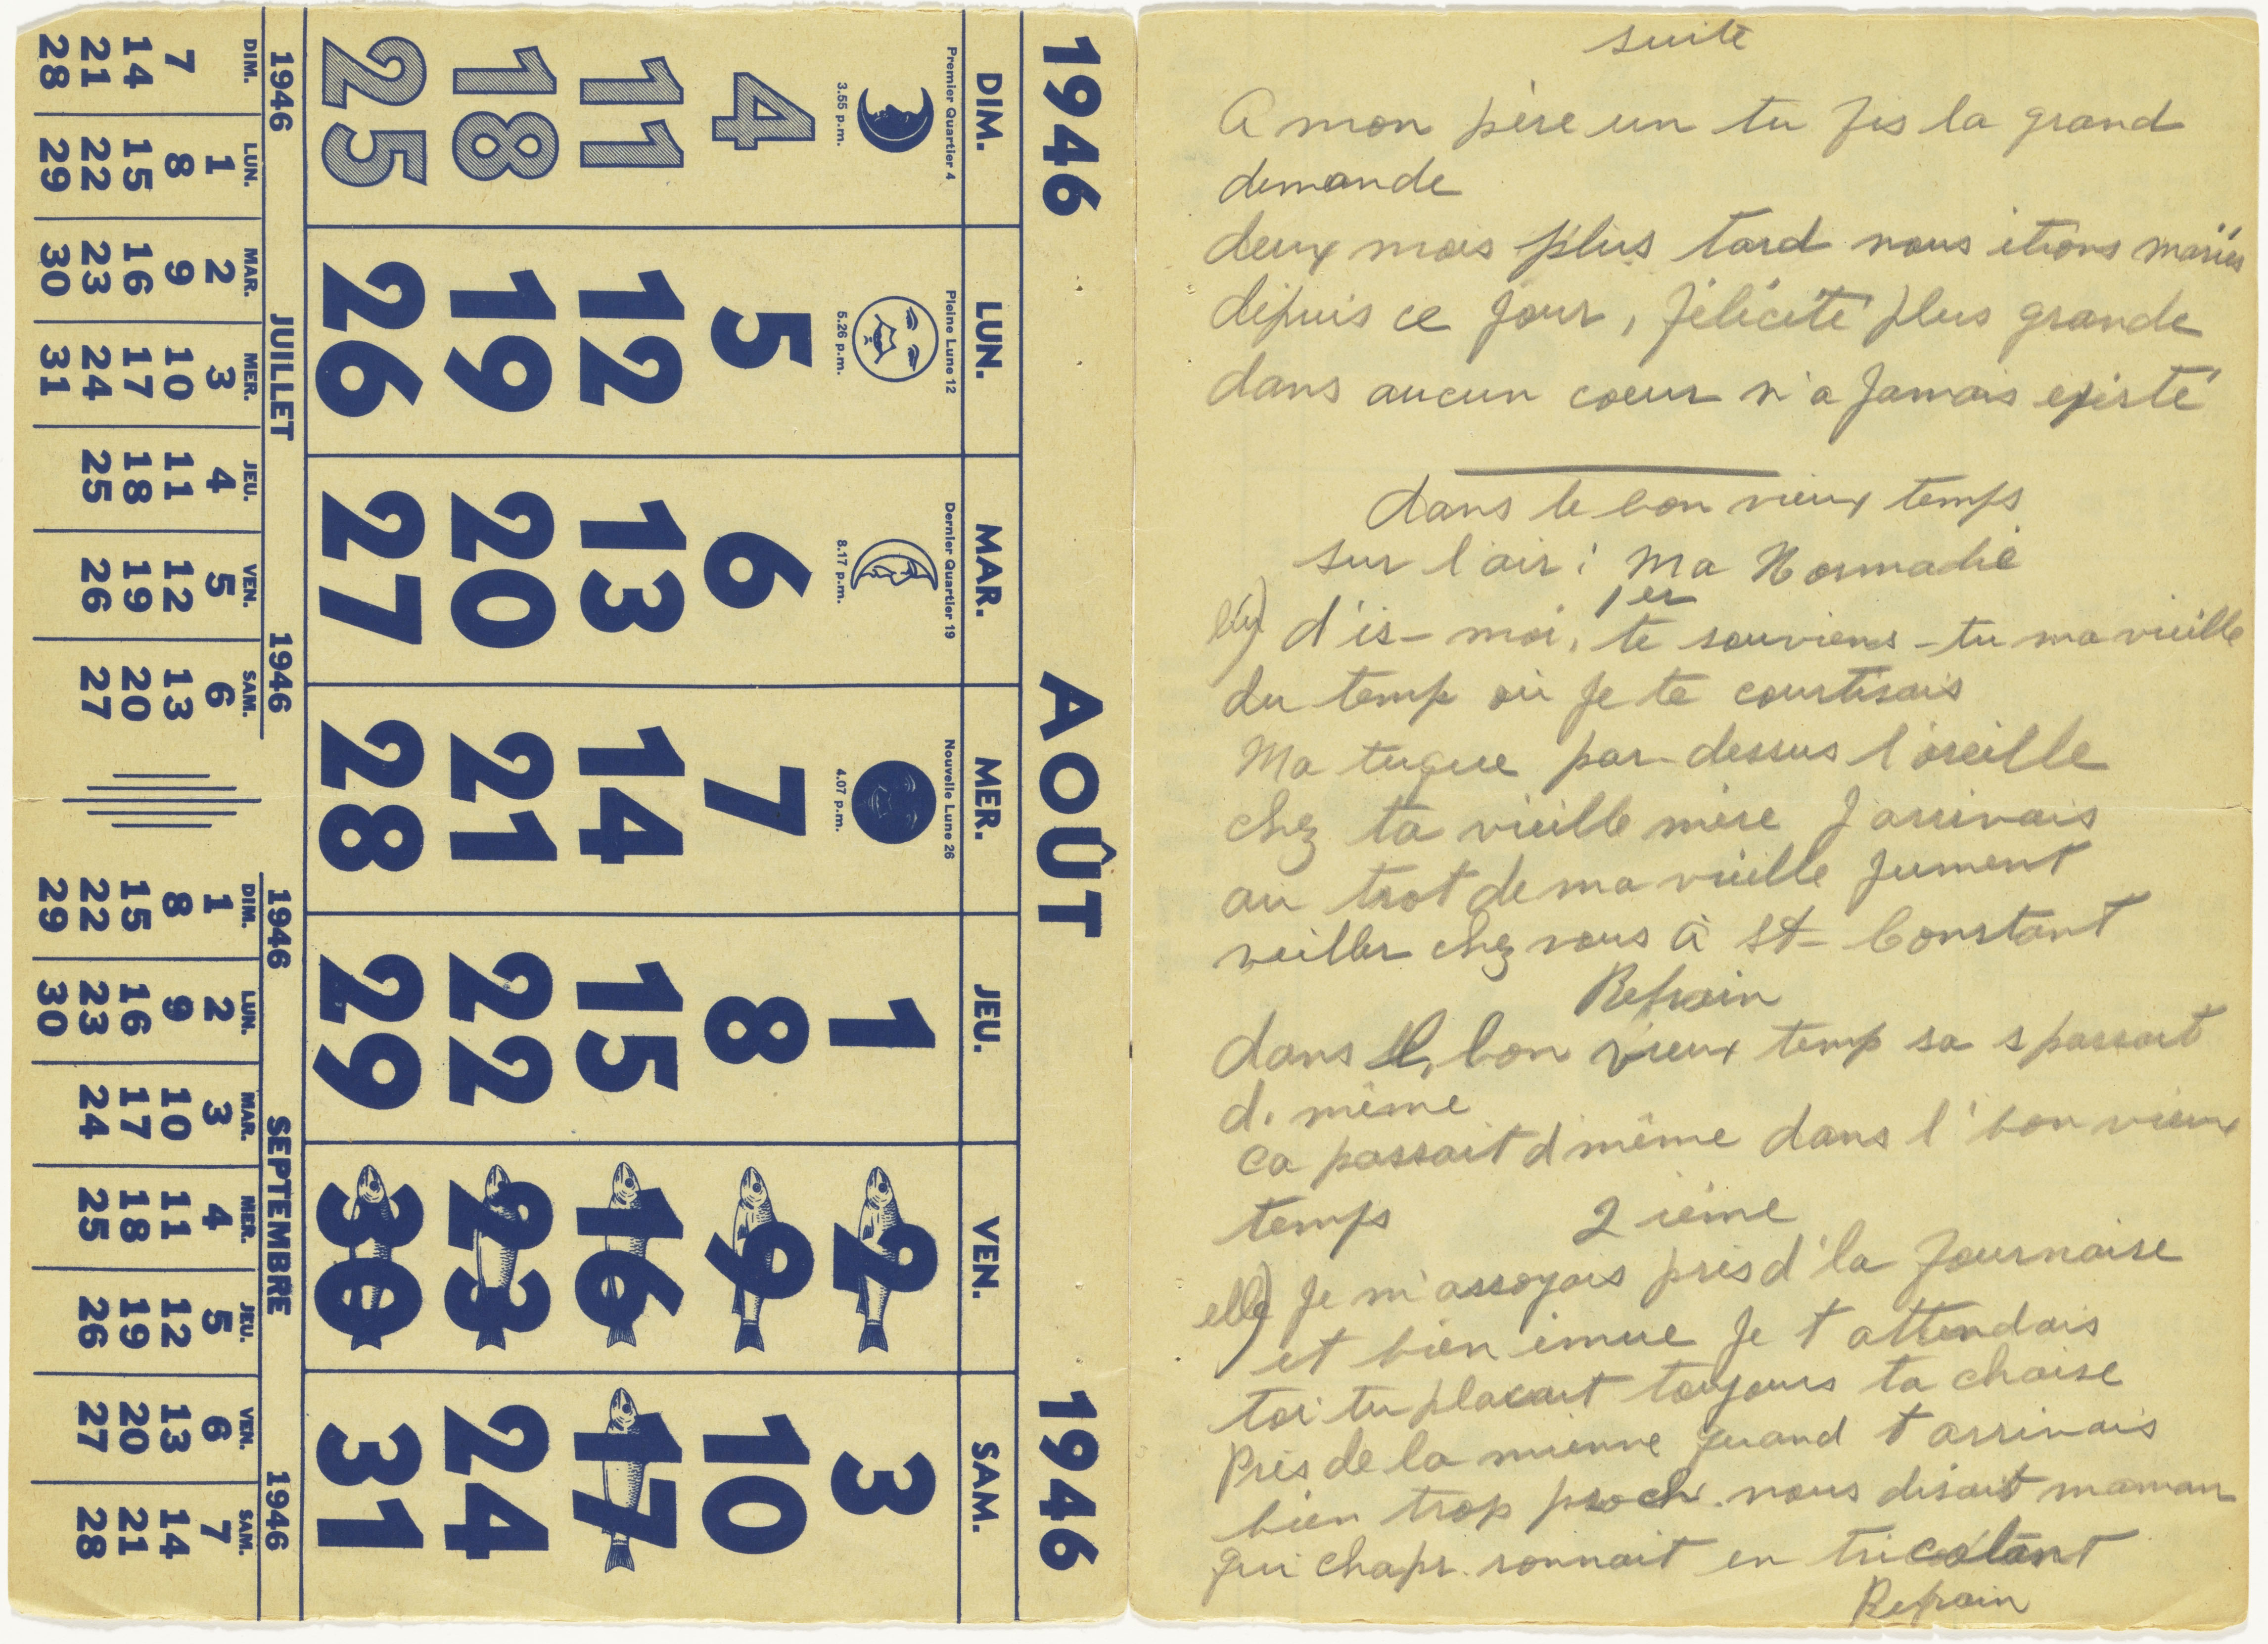 1946 AOÛT 1946
DIM. LUN. MAR. MER. JEU. VEN. SAM.
Premier Quartier 4 Pleine Lune 12 Dernier Quartier 19 Nouvelle Lune 26
3.55 p.m. 5.26 p.m. 8.17 p.m. 4.07 p.m.
1 2 3
4 5 6 7 8 9 10
11 12 13 14 15 16 17
18 19 20 21 22 23 24
25 26 27 28 29 30 31
1946 JUILLET 1946
DIM. LUN. MAR. MER. JEU. VEN. SAM.
1 2 3 4 5 6
7 8 9 10 11 12 13
14 15 16 17 18 19 20
21 22 23 24 25 26 27
28 29 30 31
1946 SEPTEMBRE 1946
DIM. LUN. MAR. MER. JEU. VEN. SAM.
1 2 3 4 5 6 7
8 9 10 11 12 13 14
15 16 17 18 19 20 21
22 23 24 25 26 27 28
29 30
suite
A mon père un tu fis la grand
demande
deux mois plus tard nous étions mariés
dépuis ce jour, félicité plus grande
dans aucun coeur n'a jamais existé
dans le bon vieux temps
sur l'air : Ma Normadie
1er
lui) d'is-moi, te souviens-tu ma vieille
du temp où je te courtisais
Ma tuque par-dessus l'oreille
chez ta vieille mère j arrivais
au trot de ma vieille jument
veiller chez vous à St-Constant
Refrain
dans l bon vieux temp sa s passait
d. même
ca passait d même dans l'bon vieux
temps
2 ième
elle) je m'assoyais près d'la fournaise
et bien émue je t attendais
toi tu placait toujours ta chaise
Près de la mienne quand t arrivais
bien trop proch. nous disait maman
qui chap. ronnait en tricotant
Refrain